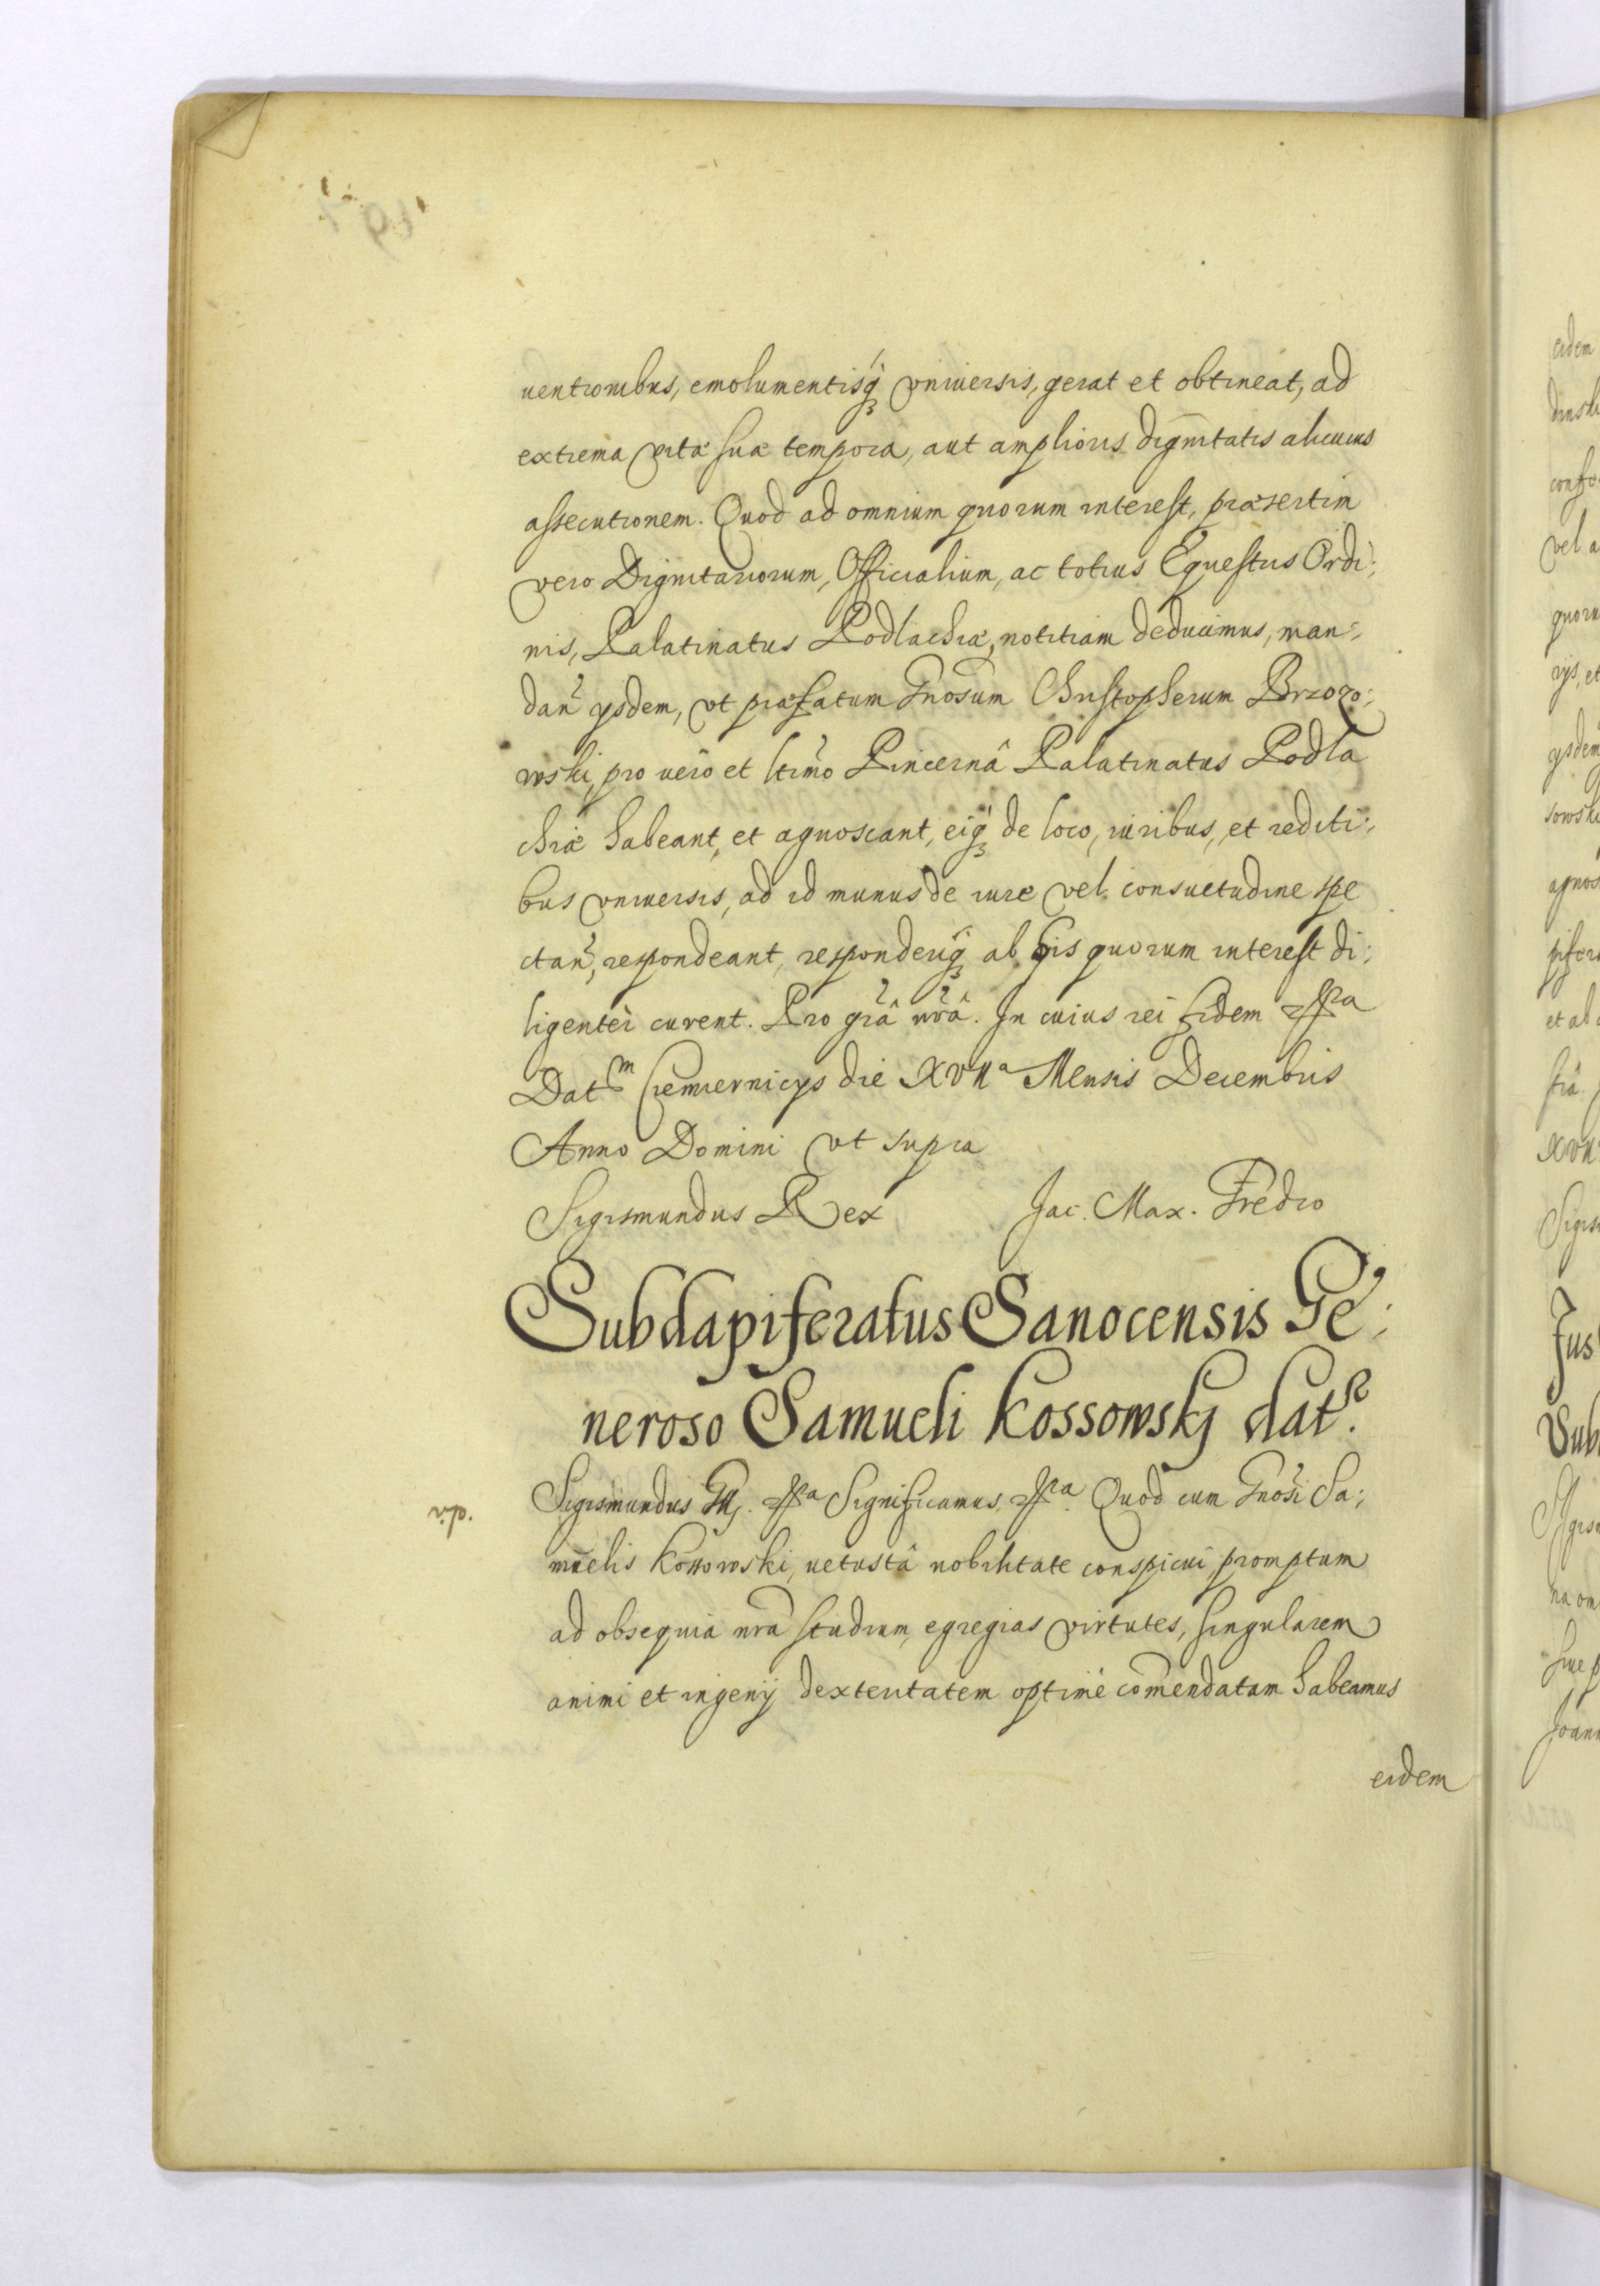 uentionibus, emolumentisq́ꝫ vniuersis, gerat et obtineat, ad
extrema vitæ suæ tempora, aut amplioris dignitatis alicuius
assecutionem. Quod ad omnium quorum interest, præsertim
vero Dignitariorum, Officialium, ac totius Equestris Ordi:
nis, Palatinatus Podlachiæ, notitiam deducimus, man:
dan̄ ysdem, vt præfatum Gnosum Christopherum Brzozo:
wski, pro uero et ltimo Pincernâ Palatinatus Podla
chiæ habeant, et agnoscant, eiq́ꝫ de loco, iuribus, et rediti:
bus vniuersis, ad id munus de iure vel consuetudine spe
ctan̄, respondeant, responderiq́ꝫ ab his quorum interest di:
ligenter curent. Pro grâ nrâ. In cuius rei fidem
Datm Cremiernicys die XVIIa Mensis Decembris
Anno Domini vt supra
Sigismundus Rex Jac. Max. Fredro
Subdapiferatus Sanocensis Ge:
neroso Samueli Kossowskj datr.
Sigismundus Significamus Quod cum Gnosi Sa:
muelis Kossowski, uetustâ nobilitate conspicui promptum
ad obsequia nrã studium, egregias virtutes, singularem
animi et ingenij dexteritatem optimè com̄endatam habeamus
eidem